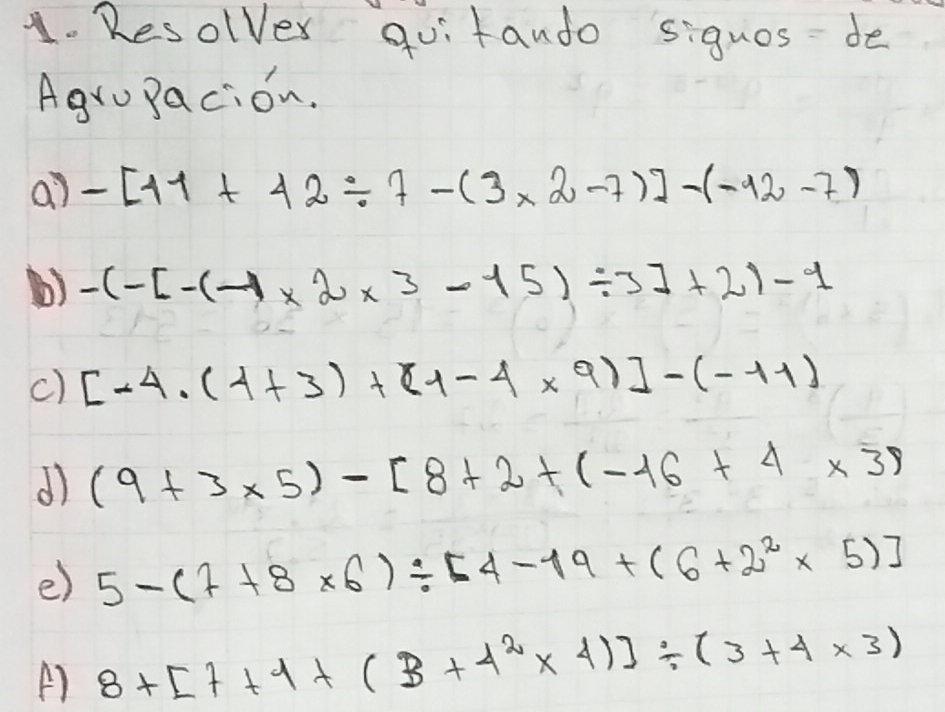 1. Resolver quitando signos de
Agrupación.
a) -[11 + 42 ÷ 7 -(3 × 2 -7)] -(-12 -7)
b) -(-[-(-1 × 2 × 3 - 15) ÷ 3] + 2) - 1
c) [-4 . (4+3) + (1 - 4 × 9)] -(-11)
d) (9 + 3 × 5) - [8 + 2 + (-16 + 4 × 3)
e) 5 - (7 + 8 × 6) ÷ [4 - 19 + (6 + 2² × 5)]
f) 8 + [7 + 1 + (3 + 4² × 4)] ÷ (3 + 4 × 3)